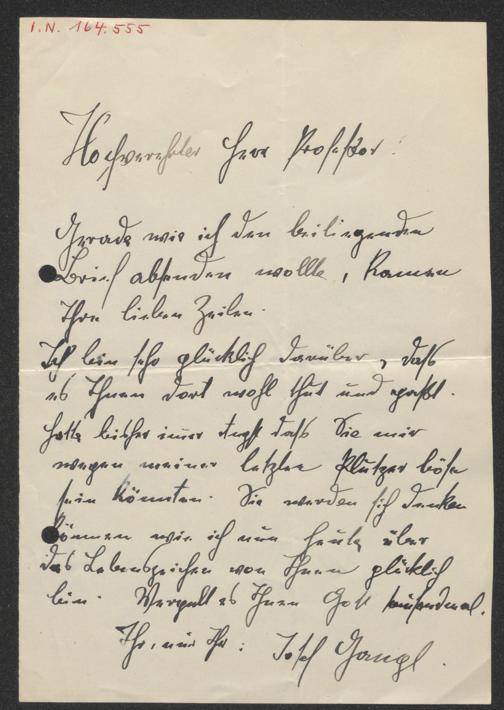 I.N. 164.555
Hochverehrter Herr Professor!
Gerade wie ich den beiliegenden
Brief absenden wollte, kamen
Ihre lieben Zeilen.
Ich bin sehr glücklich darüber, daß
es Ihnen dort wohl thut und paßt.
Hatte bisher immer Angst daß Sie mir
wegen meiner letzten Klutzer böse
sein könnten. Sie werden sich denken
können wie ich nun heute über
das Lebenszeichen von Ihnen glücklich
bin. Vergelt es Ihnen Gott tausendmal.
Ihr, nur Ihr: Josef Gangl.